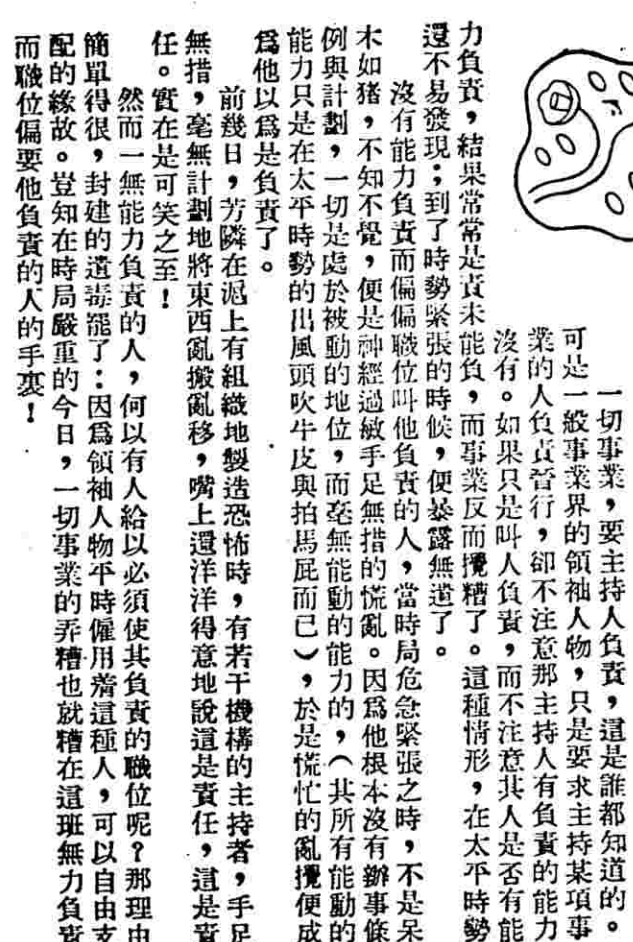 一切事業，要主持人負責，這是誰都知道的。
可是一般事業界的領袖人物，只是要求主持某項事
業的人負責罟行，卻不注意那主持人有負責的能力
沒有。如果只是叫人負責，而不注意其人是否有能
力負責，結果常常是責未能負，而事業反而攪糟了。這種情形，在太平時勢
還不易發現；到了時勢緊張的時候，便暴露無遺了。
沒有能力負責而偏偏職位叫他負責的人，當時局危急緊張之時，不是呆
木如猪，不知不覺，便是神經過敏手足無措的慌亂。因爲他根本沒有辦事條
例與計劃，一切是處於被動的地位，而毫無能動的能力的，（其所有能動的
能力只是在太平時勢的出風頭吹牛皮與拍馬屁而已），於是慌忙的亂攪便成
爲他以爲是負責了。
前幾日，芳隣在滬上有組織地製造恐怖時，有若干機構的主持者，手足
無措，毫無計劃地將東西亂搬亂移，嘴上還洋洋得意地說這是責任，這是責
任。實在是可笑之至！
然而一無能力負責的人，何以有人給以必須使其負責的職位呢？那理由
簡單得很，封建的遺毒罷了：因爲領袖人物平時僱用着這種人，可以自由支
配的緣故。豈知在時局嚴重的今日，一切事業的弄糟也就糟在這班無力負責
而職位偏要他負責的人的手裏！